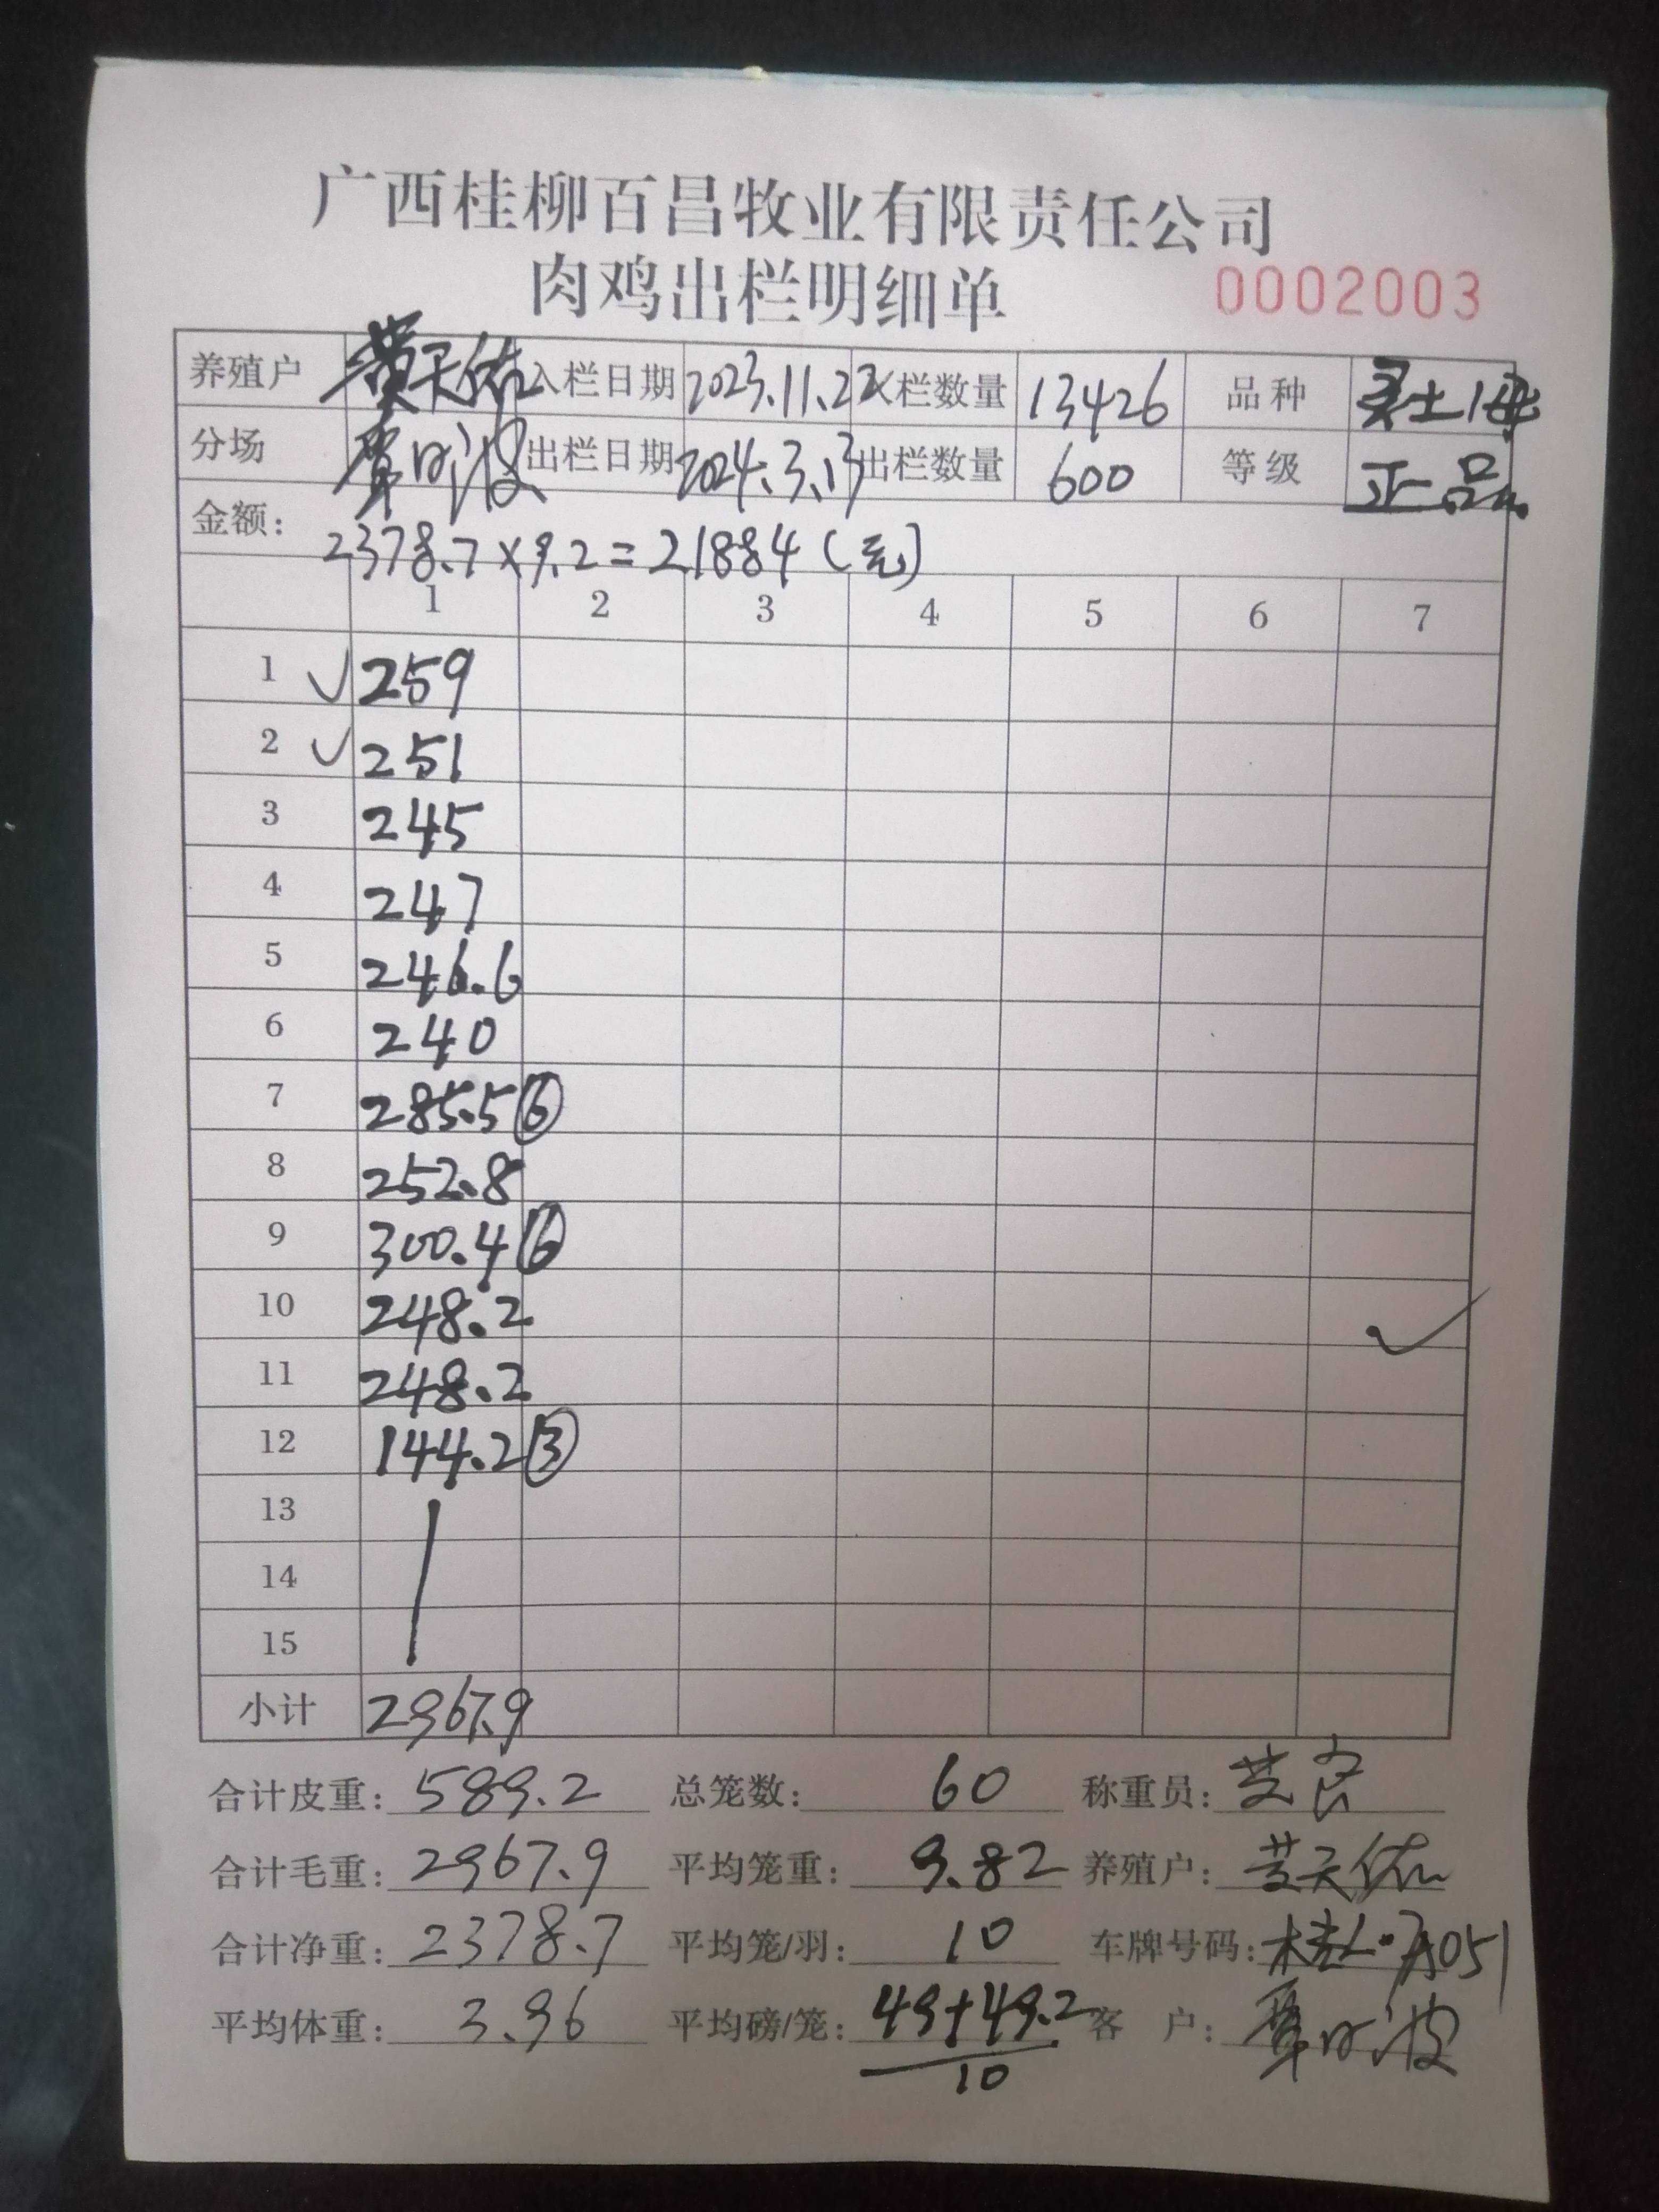 广西桂柳百昌牧业有限责任公司
肉鸡出栏明细单 0002003
养殖户 黄天佑 入栏日期 2023.11.22 入栏数量 13426 品种 土1母
分场 覃 波 出栏日期 2024.3.13 出栏数量 600 等级 正品
金额: 2378.7×9.2=21884(元)
1 2 3 4 5 6 7
1 √259
2 √251
3 245
4 247
5 246.6
6 240
7 285.5⑥
8 252.8
9 300.4⑥
10 248.2
11 248.2
12 144.2③
13
14
15
小计 2967.9
合计皮重: 589.2 总笼数: 60 称重员:
合计毛重: 2967.9 平均笼重: 9.82 养殖户: 黄天佑
合计净重: 2378.7 平均笼/羽: 10 车牌号码: 桂L·7A051
平均体重: 3.96 平均磅/笼: 49+49.2 客 户: 覃 波
10